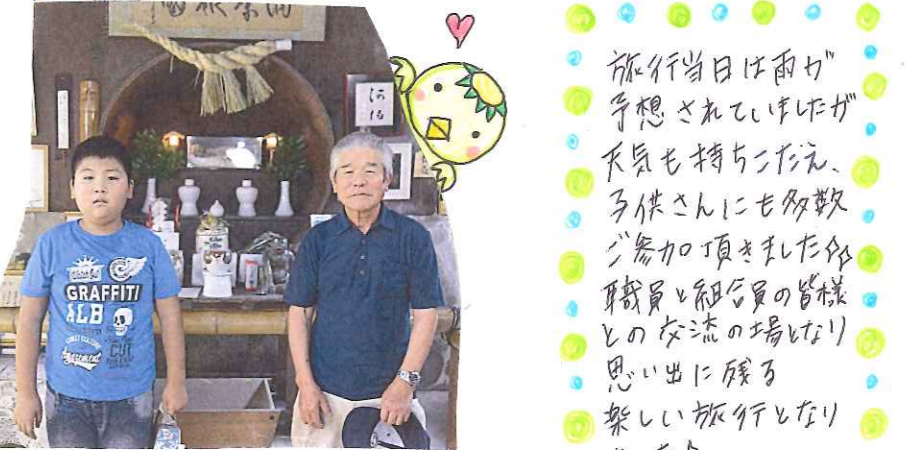 GRAFFITI
ALB
CUT
旅行当日は雨が
予想されていましたが
天気も持ちこたえ、
子供さんにも多数
ご参加頂きました
職員と組合員の皆様
との交流の場となり
思い出に残る
楽しい旅行となり